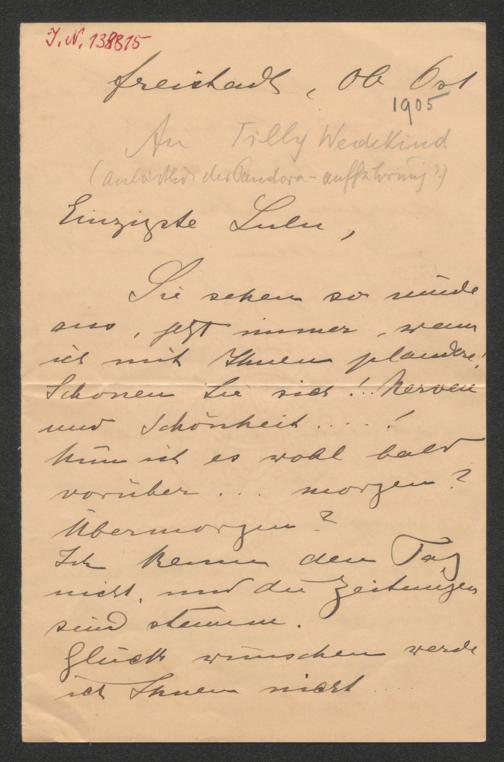 I. N. 138815
Freistadt, Ob Öst
1905
An Tilly Wedekind
(anläßlich der Pandora-aufführung?)
Einzigste Lulu,
Sie sehen so müde
aus, jetzt immer, wenn
ich mit Ihnen plaudere!
Schonen Sie sich!.. Nerven
und Schönheit.....!
Nun ist es wohl bald
vorüber... morgen?
Übermorgen?
Ich kenne den Tag
nicht, und die Zeitungen
sind stumm.
Glück wünschen werde
ich Ihnen nicht....